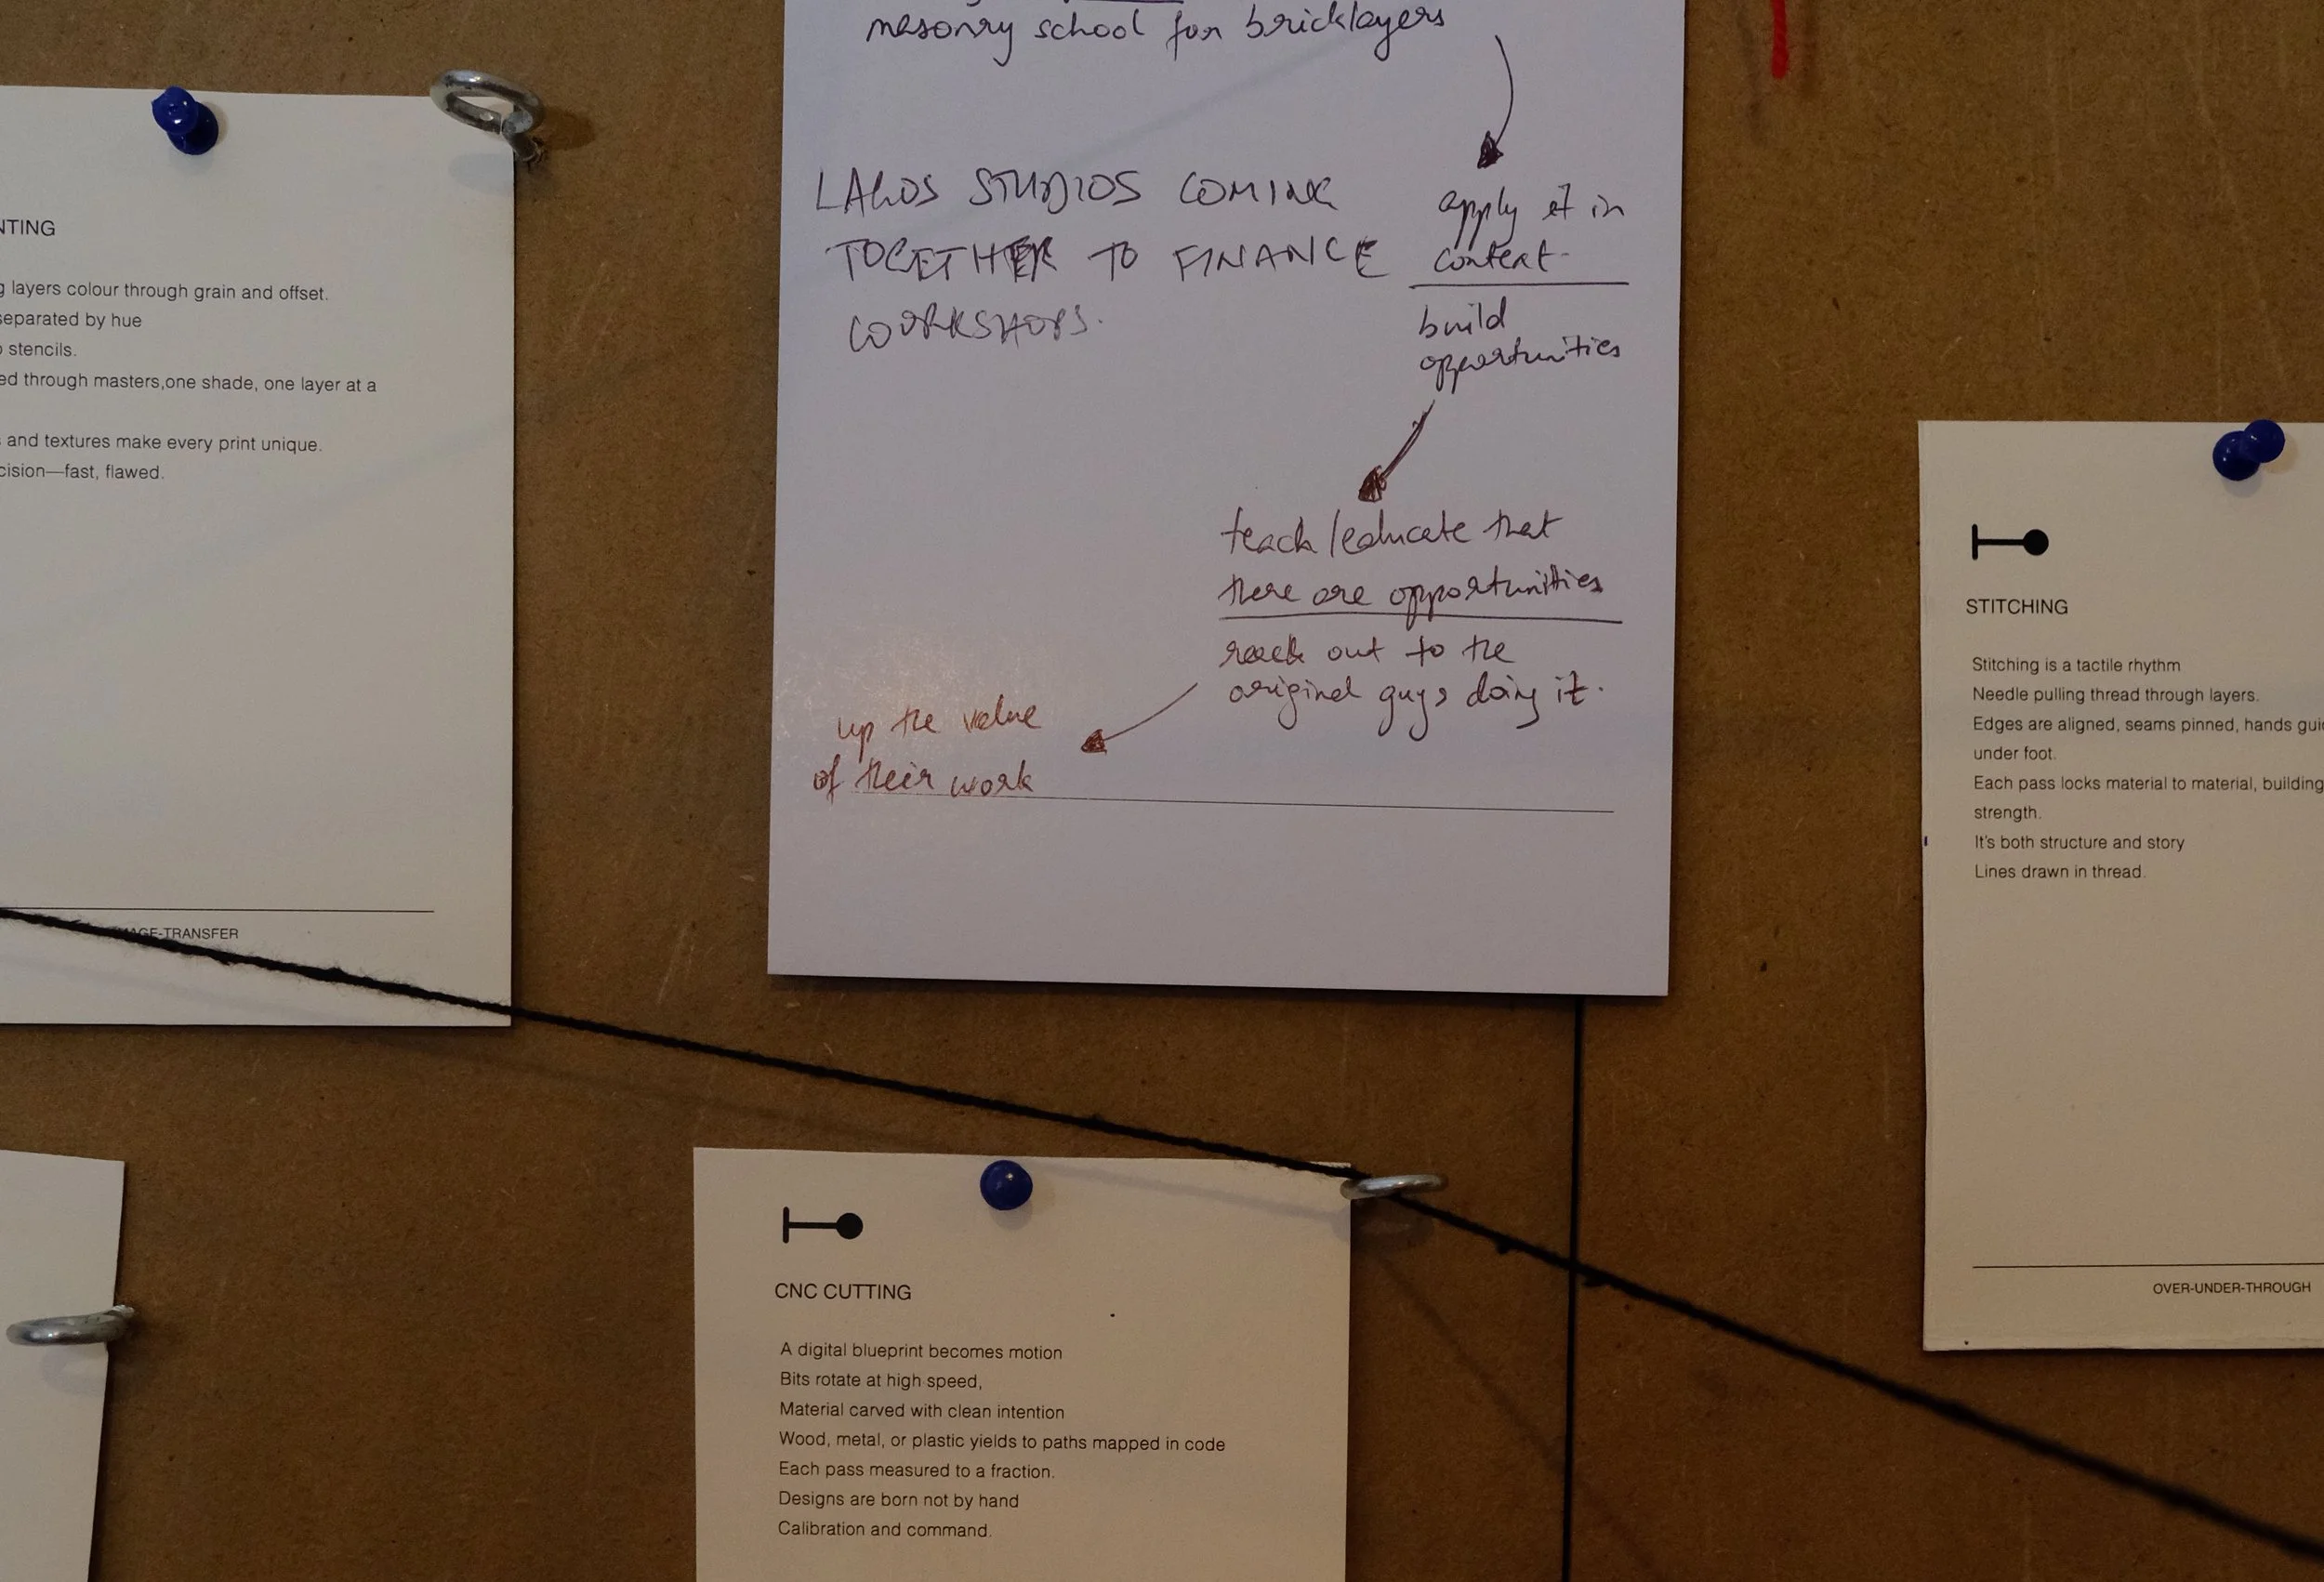 NTING
g layers colour through grain and offset.
separated by hue
o stencils.
ed through masters,one shade, one layer at a
s and textures make every print unique.
cision—fast, flawed.
IMAGE-TRANSFER
masonry school for bricklayers
LAGOS STUDIOS COMING
TOGETHER TO FINANCE
WORKSHOPS.
apply it in
context.
build
opportunities
teach/educate that
there are opportunities
reach out to the
original guys doing it.
up the value
of their work
STITCHING
Stitching is a tactile rhythm
Needle pulling thread through layers.
Edges are aligned, seams pinned, hands gui
under foot.
Each pass locks material to material, building
strength.
It's both structure and story
Lines drawn in thread.
OVER-UNDER-THROUGH
CNC CUTTING
A digital blueprint becomes motion
Bits rotate at high speed,
Material carved with clean intention
Wood, metal, or plastic yields to paths mapped in code
Each pass measured to a fraction.
Designs are born not by hand
Calibration and command.